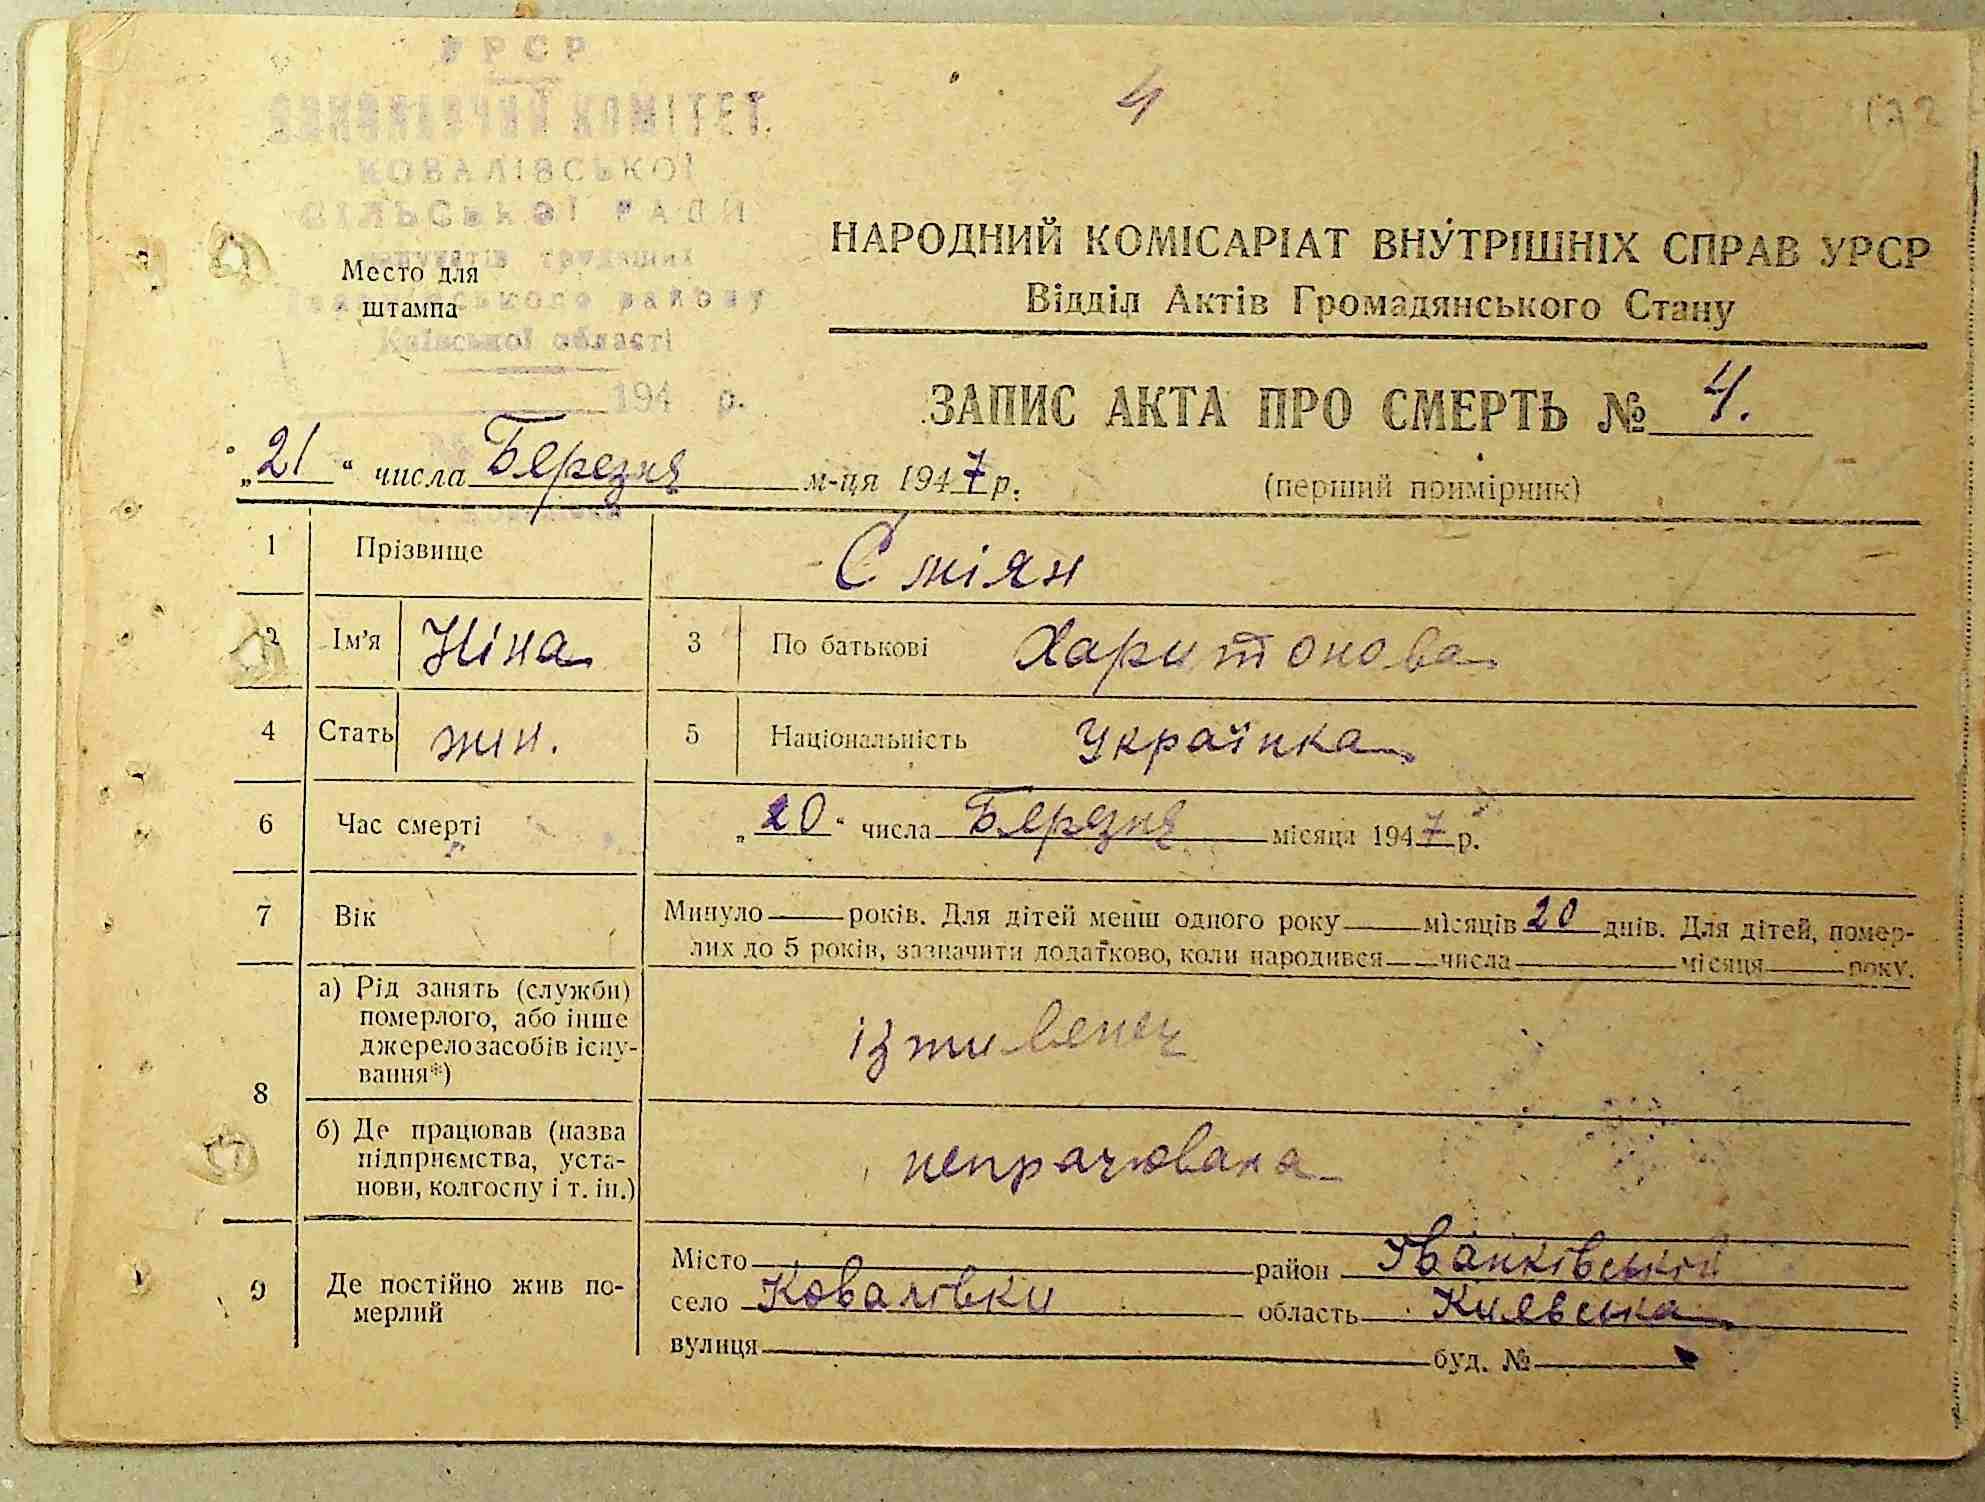 УРСР
ВИКОНАВЧИЙ КОМІТЕТ
КОВАЛІВСЬКОЇ
СІЛЬСЬКОЇ РАДИ
депутатів трудящих
Іванківського району
Київської області
194 р.
Место для
штампа
4
НАРОДНИЙ КОМІСАРІАТ ВНУТРІШНІХ СПРАВ УРСР
Відділ Актів Громадянського Стану
ЗАПИС АКТА ПРО СМЕРТЬ № 4.
„21“ числа Березня м-ця 1947 р.
(перший примірник)
1 Прізвище Сміян
2 Ім'я Ніна 3 По батькові Харитонова
4 Стать жін. 5 Національність Українка
6 Час смерті „20“ числа Березня місяця 1947 р.
7 Вік Минуло років. Для дітей менш одного року місяців 20 днів. Для дітей, помер-
лих до 5 років, зазначити додатково, коли народився числа місяця року.
8 а) Рід занять (служби)
померлого, або інше
джерело засобів існу-
вання*)
ізтивенец
б) Де працював (назва
підприємства, уста-
нови, колгоспу і т. ін.)
непрачювала
9 Де постійно жив по-
мерлий
Місто район Іванківський
село Ковалівки область Киевська
вулиця буд. №